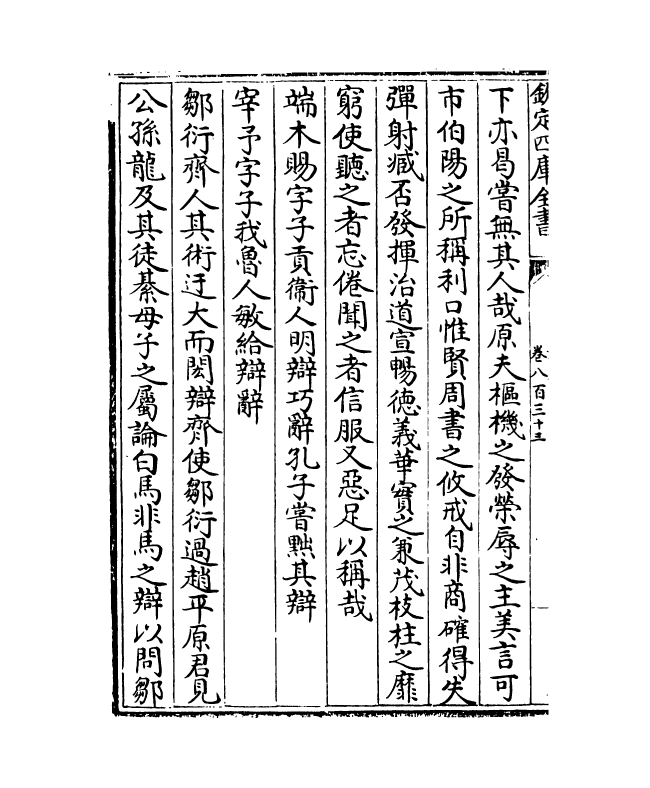 欽定四庫全書
卷八百三十三
下亦曷嘗無其人哉原夫樞機之發榮辱之主美言可
市伯陽之所稱利口惟賢周書之攸戒自非商確得失
彈射臧否發揮治道宣暢德義華實之兼茂枝柱之靡
窮使聽之者忘倦聞之者信服又惡足以稱哉
端木賜字子貢衛人明辯巧辭孔子嘗黜其辯
宰予字子我魯人敏給辯辭
鄒衍齊人其術迂大而閎辯齊使鄒衍過趙平原君見
公孫龍及其徒綦母子之屬論白馬非馬之辯以問鄒